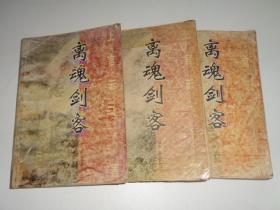 离魂剑客
离魂剑客
离魂剑客